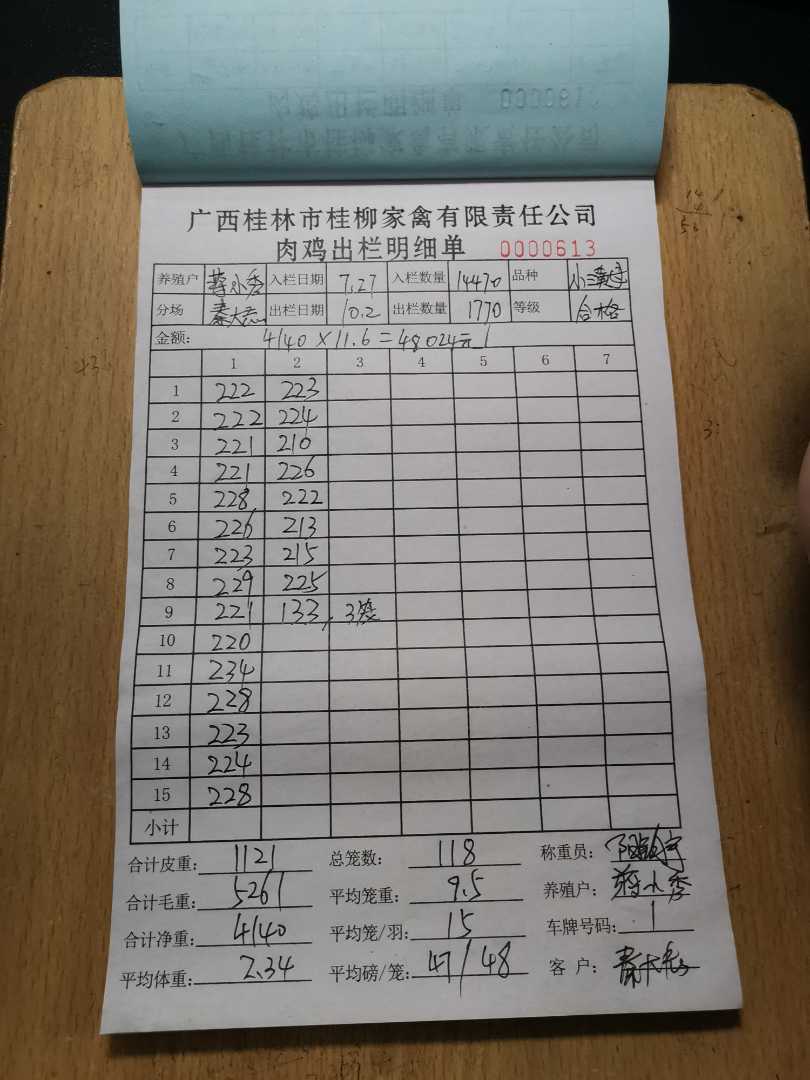 广西桂林市桂柳家禽有限责任公司
肉鸡出栏明细单 0000613
养殖户 蒋小秀 入栏日期 7.27 入栏数量 14470 品种
分场 出栏日期 10.2 出栏数量 1770 等级 合格
金额: 4140×11.6=48024元
1 2 3 4 5 6 7
1 222 223
2 222 224
3 221 210
4 221 226
5 228 222
6 226 213
7 223 215
8 229 225
9 221 133, 3笼
10 220
11 234
12 228
13 223
14 224
15 228
小计
合计皮重: 1121 总笼数: 118 称重员:
合计毛重: 5261 平均笼重: 9.5 养殖户: 蒋小秀
合计净重: 4140 平均笼/羽: 15 车牌号码:
平均体重: 2.34 平均磅/笼: 47/48 客户: